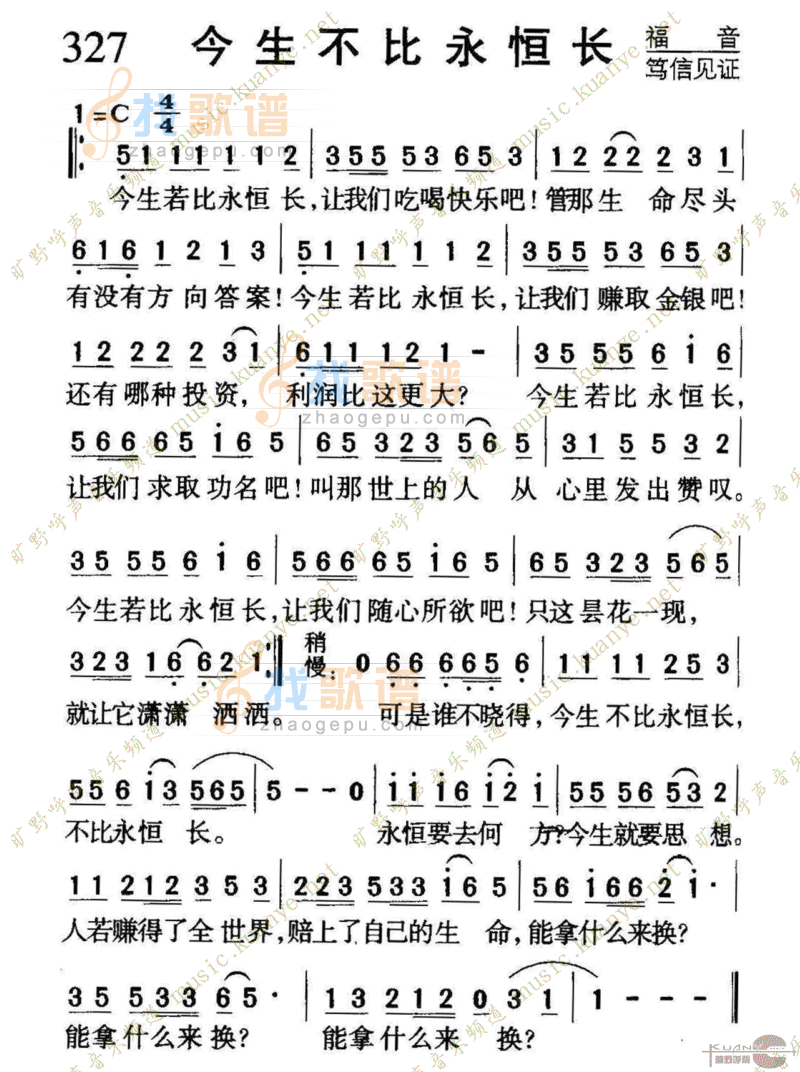 327 今生不比永恒长 福音
笃信见证
1=C 4/4
5 1 1 1 1 1 2 | 3 5 5 5 3 6 5 3 | 1 2 2 2 2 3 1 |
今生若比永恒长,让我们吃喝快乐吧!管那生 命尽头
6 1 6 1 2 1 3 | 5 1 1 1 1 1 2 | 3 5 5 5 3 6 5 3 |
有没有方向答案!今生若比永恒长,让我们赚取金银吧!
1 2 2 2 2 2 3 1 | 6 1 1 1 2 1 - | 3 5 5 5 5 6 i 6 |
还有哪种投资, 利润比这更大? 今生若比永恒长,
5 6 6 6 5 i 6 5 | 6 5 3 2 3 5 6 5 | 3 1 5 5 3 2 |
让我们求取功名吧!叫那世上的人 从 心里发出赞叹。
3 5 5 5 6 i 6 | 5 6 6 6 5 i 6 5 | 6 5 3 2 3 5 6 5 |
今生若比永恒长,让我们随心所欲吧!只这昙花一现,
3 2 3 1 6 6 2 1 :‖ 稍慢: 0 6 6 6 6 5 6 | 1 1 1 1 2 5 3 |
就让它潇潇 洒洒。 可是谁不晓得,今生不比永恒长,
5 5 6 i 3 5 6 5 | 5 - - 0 | i i i 6 i 2 i | 5 5 5 6 5 3 2 |
不比永恒 长。 永恒要去何 方?今生就要思 想。
1 1 2 1 2 3 5 3 | 2 2 3 5 3 3 i 6 5 | 5 6 i 6 6 2 i · |
人若赚得了全世界,赔上了自己的生 命,能拿什么来换?
3 5 5 3 3 6 5 · | 1 3 2 1 2 0 3 1 | 1 - - - ‖
能拿什么来换? 能拿什么来 换?
找歌谱
zhaogepu.com
旷野呼声音乐频道 music.kuanye.net
旷野呼声